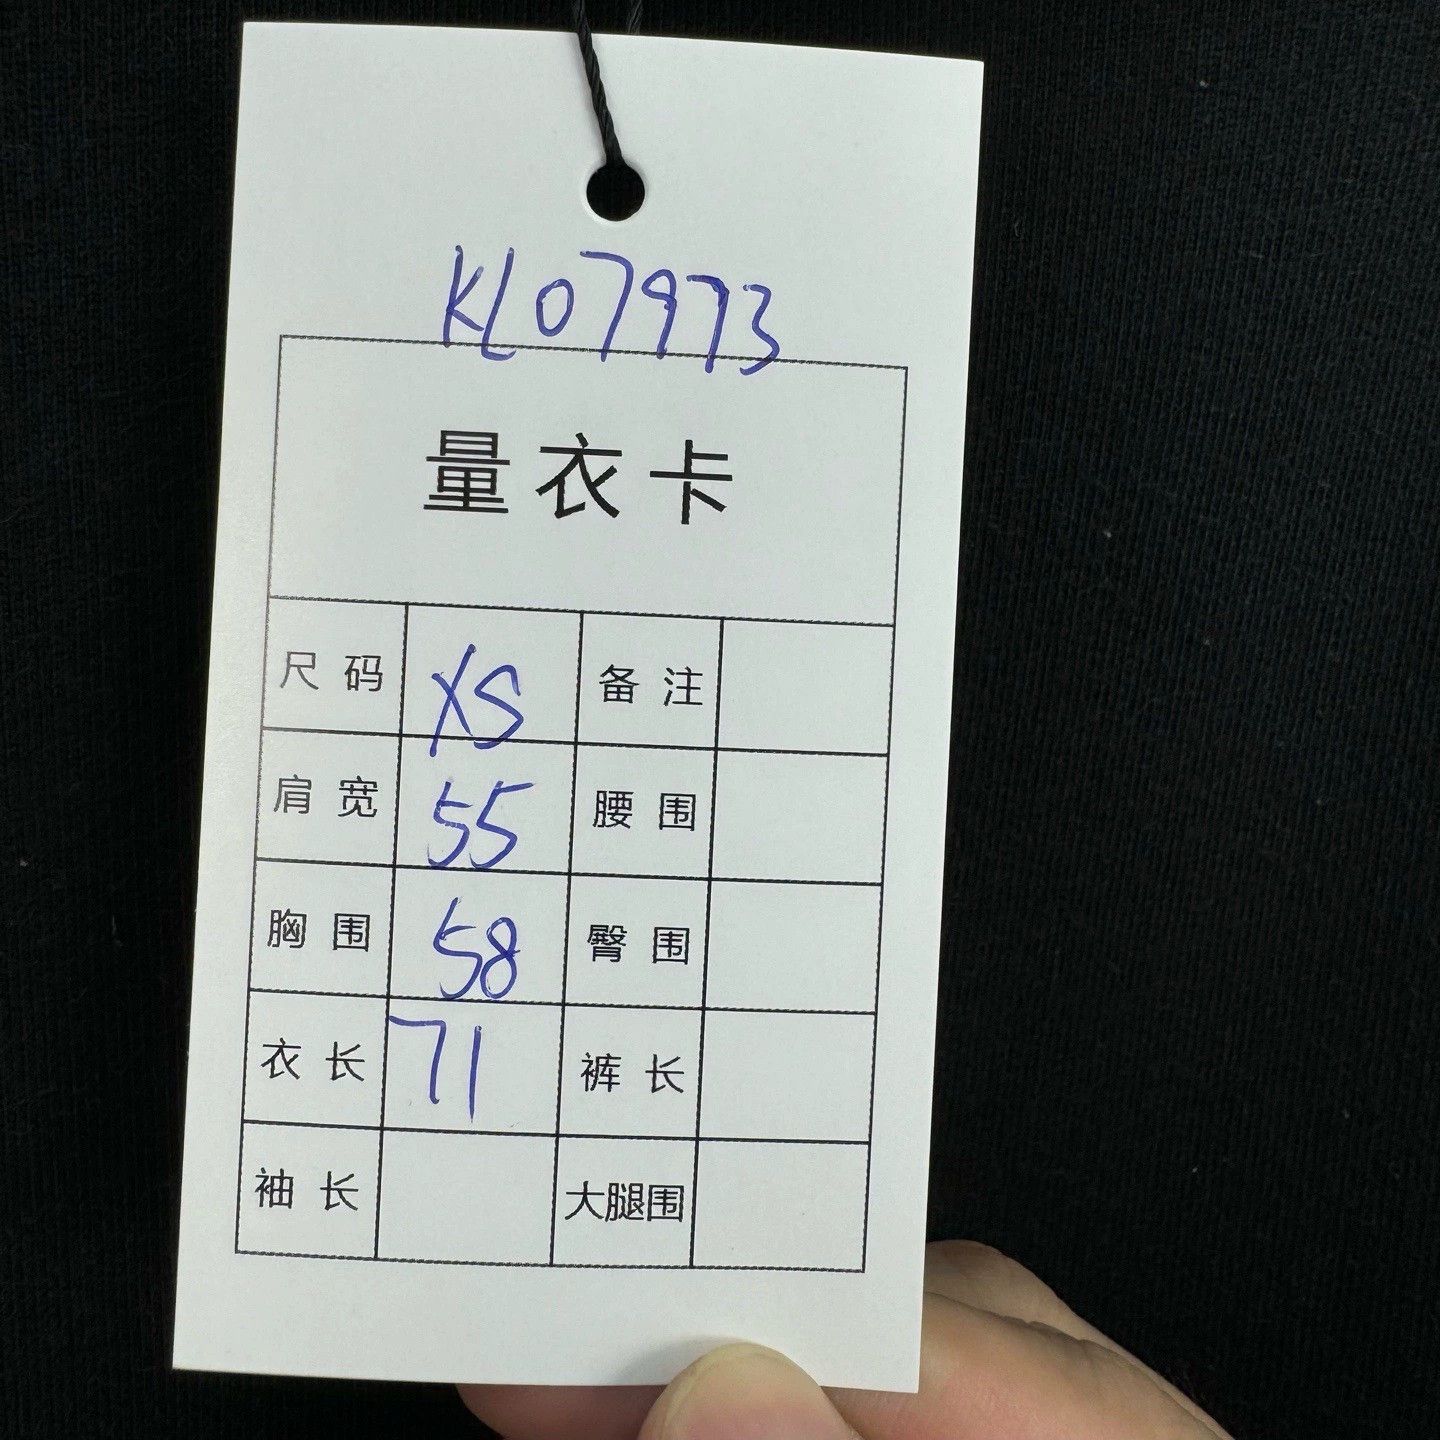 KL07973
量衣卡
尺码 XS 备注
肩宽 55 腰围
胸围 58 臀围
衣长 71 裤长
袖长 大腿围